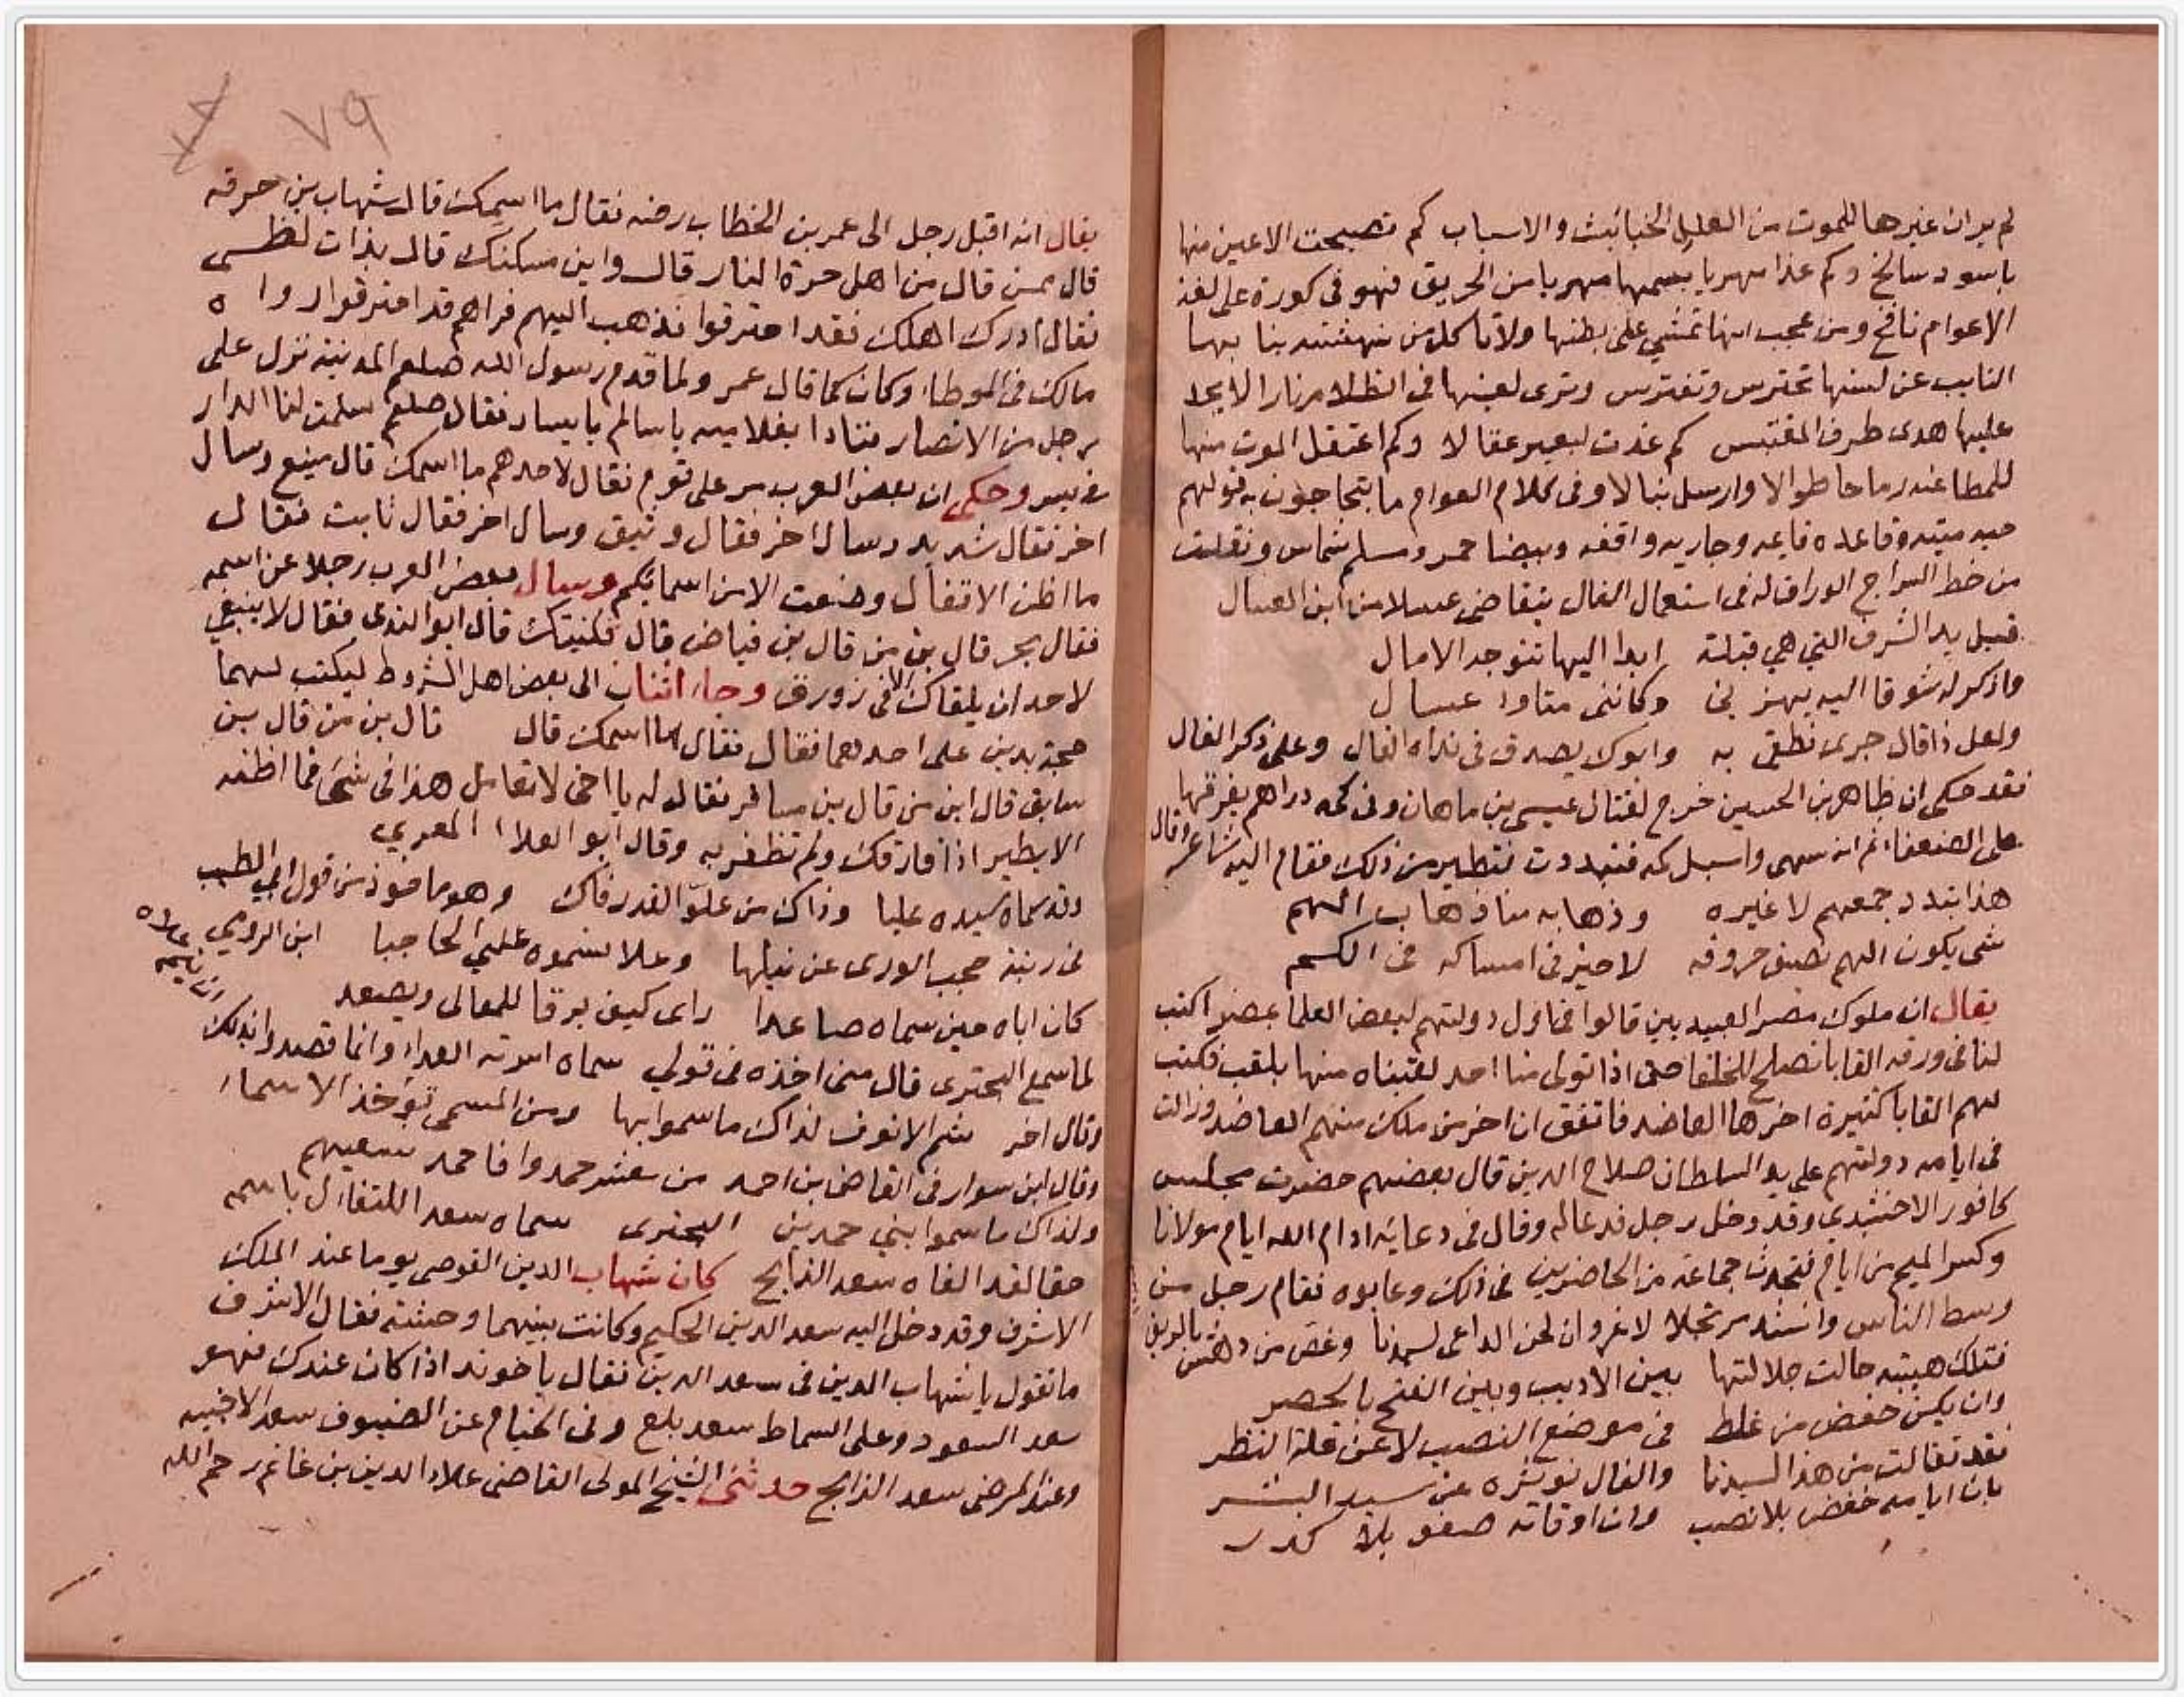 لم ير ان غيرها للموت من العلل الخبائث والاسباب كم تصبحت الاعين منها
باسود سالخ وكم غدا مهريا بسمها مهريا من الحريق فهو فى كورة على لغة
الاعوام نافخ ومن عجب انها تمشي على بطنها ولا تاكل من بها
الناب عن لسنها تحترس وتفترس وترى لعينها فى الظلام نارا لا يجد
عليها هدى طرف المقتبس كم غدت لبعير عقالا وكم اعتقل الموت منها
للمطاعنه رماحا طوالا وارسل نبالا وفى كلام العوام ما يتحاجون به قولهم
حيه ميته وقاعده قايمه وجاريه واقفه وبيضا حمر وسلم شماس ونقلت
من خط السراج الوراق له فى استعمال الفال يتقاضى عسلا من ابن العسال
قبل يد الشرف التي هي قبلة ابدا اليها تتوجه الامال
واذكر له شوقا اليه يهز نى وكاننى متاود عسال
ولعل ذا قال جرى نطقى به وابوك يصدق فى نداه الفال وعلى ذكر الفال
فقد حكى ان طاهر بن الحسين خرج لقتال عيسى بن ماهان وفى كمه دراهم يفرقها
على الضعفاء ثم انه سهى واسبل كمه فتبددت فتطير من ذلك فقام اليه شاعر وقال
هذا تبدد جمعهم لا غيره وذهابه منا ذهاب الهم
شى يكون الهم نصف حروفه لا خير فى امساكه فى الكم
يقال ان ملوك مصر العبيديين قالوا فى اول دولتهم لبعض العلما بمصر اكتب
لنا فى ورقه القابا تصلح للخلفا حتى اذا تولى منا احد لقبناه منها بلقب فكتب
لهم القابا كثيرة اخرها العاضد فاتفق ان اخر من ملك منهم العاضد وزالت
فى ايامه دولتهم على يد السلطان صلاح الدين قال بعضهم حضرت مجلس
كافور الاخشيدي وقد دخل رجل فدعا له وقال فى دعائه ادام الله ايام مولانا
وكسر الميم من ايام فتحدث جماعة من الحاضرين فى ذلك وعابوه فقام رجل من
وسط الناس وانشد مرتجلا لا غرو ان لحن الداعى لسيدنا وغص من دهش بالريق
فتلك هيبته حالت جلالتها بين الاديب وبين الفتح بالحصر
وان يكن خفض من غلط فى موضع النصب لا عن قلة النظر
فقد تفالت من هذا لسيدنا والفال نوثره عن سيد البشر
بان ايامه خفض بلا نصب وان اوقاته صفو بلا كدر
٧٩
يقال انه اقبل رجل الى عمر بن الخطاب رضه فقال ما اسمك قال شهاب بن حرقه
قال ممن قال من اهل حرة النار قال واين مسكنك قال بذات لظى
فقال ادرك اهلك فقد احترقوا فذهب اليهم فراهم قد احترقوا رواه
مالك فى الموطاء وكان كما قال عمر ولما قدم رسول الله صلعم المدينة نزل على
رجل من الانصار فنادا بغلاميه يا سالم يا يسار فقال صلعم سلمت لنا الدار
فى يسر وحكى ان بعض العرب مر على قوم فقال لاحدهم ما اسمك قال منيع وسال
اخر فقال شديد وسال اخر فقال وثيق وسال اخر فقال ثابت فقال
ما اظن الاقفال وضعت الا من اسمائكم وسال بعض العرب رجلا عن اسمه
فقال بحر قال بن من قال بن فياض قال فكنيتك قال ابو الندى فقال لا ينبغي
لاحد ان يلقاك الا فى زورق وجاء اثنان الى بعض اهل الشروط ليكتب لهما
حجة بدين على احدهما فقال فقال ما اسمك قال قال بن من قال بن
سابق قال ابن من قال بن مسافر فقال له يا اخى لا تعامل هذا فى شى فما اظنه
الا يطير اذا فارقك ولم تظفر به وقال ابو العلاا المعري
وقد سماه سيده عليا وذاك من علو القدر فاك وهو ماخوذ من قول ابي الطيب
فى رتبة حجب الورى عن نيلها وعلا فسموه علي الحاجبا ابن الرومي
كان اباه حين سماه صاعدا راى كيف يرقا للمعالى ويصعد
لما سمع البحترى قال منى اخذه فى قولي سماه اسرته العداء وانما قصدوا بذلك ان يتم علاه
وقال اخر شم الانوف لذاك ما سموا بها ومن المسمى تؤخذ الاسماء
وقال ابن سوار فى القاضى بن احمد من معشر حمدوا فاحمد سعيهم
ولذاك ما سموا بنى حمدين البحترى سماه سعد اللتفاال باسمه
حقا لقد الفاه سعد الذابح كان شهاب الدين القوصى يوما عند الملك
الاشرف وقد دخل اليه سعد الدين الحكيم وكانت بينهما وحشته فقال الاشرف
ما تقول يا شهاب الدين فى سعد الدين فقال يا خوند اذا كان عندك فهو
سعد السعود وعلى السماط سعد بلع وفى الخيام عن الضيوف سعد الاخبيه
وعند المرضى سعد الذابح حدثنى الشيخ المولى القاضى علاء الدين بن غانم رحم الله